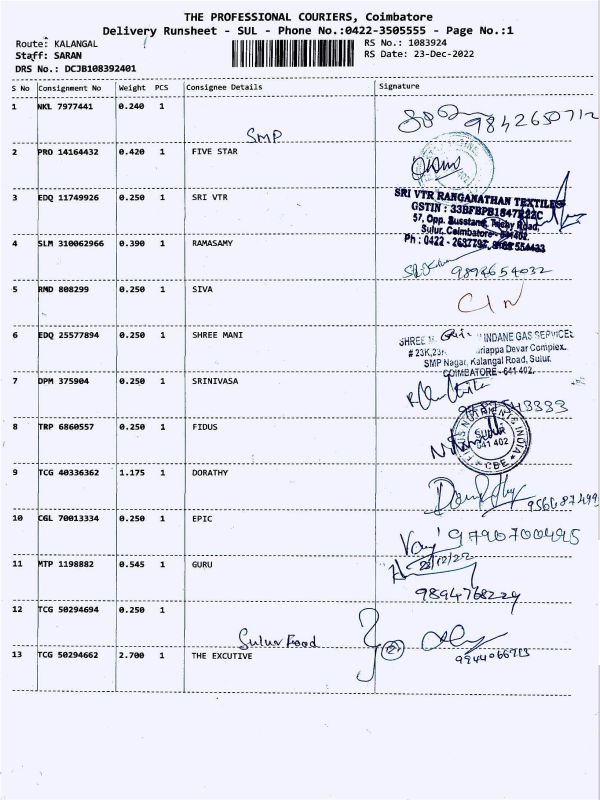 THE PROFESSIONAL COURIERS, Coimbatore
Delivery Runsheet - SUL - Phone No.:0422-3505555 - Page No.:1
Route: KALANGAL RS No.: 1083924
Staff: SARAN RS Date: 23-Dec-2022
DRS No.: DCJB108392401
S No Consignment No Weight PCS Consignee Details Signature
1 NKL 7977441 0.240 1
SMP 9842650712
2 PRO 14164432 0.420 1 FIVE STAR
3 EDQ 11749926 0.250 1 SRI VTR
SRI VTR RANGANATHAN TEXTILES
GSTIN : 33BFBPB1847
57, Opp. Busstand, Trichy Road,
Sulur, Coimbatore - 641402.
Ph : 0422 -
4 SLM 310062966 0.390 1 RAMASAMY
9894654032
5 RMD 808299 0.250 1 SIVA
6 EDQ 25577894 0.250 1 SHREE MANI
SHREE INDANE GAS SERVICES
# 23K, Devar Complex,
SMP Nagar, Kalangal Road, Sulur.
COIMBATORE - 641 402.
7 DPM 375904 0.250 1 SRINIVASA
8 TRP 6860557 0.250 1 FIDUS
FIDUS NUTRIENTS INDIA
SULUR
641 402
CBE
9 TCG 40336362 1.175 1 DORATHY
10 CGL 70013334 0.250 1 EPIC
11 MTP 1198882 0.545 1 GURU
23/12/22
9894768229
12 TCG 50294694 0.250 1
Sulur Food
13 TCG 50294662 2.700 1 THE EXCUTIVE